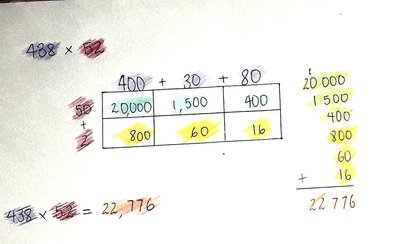 438 × 52
400 + 30 + 80
50 20,000 1,500 400
+
2 800 60 16
20 000
1 500
400
800
60
+ 16
22 776
438 × 52 = 22,776